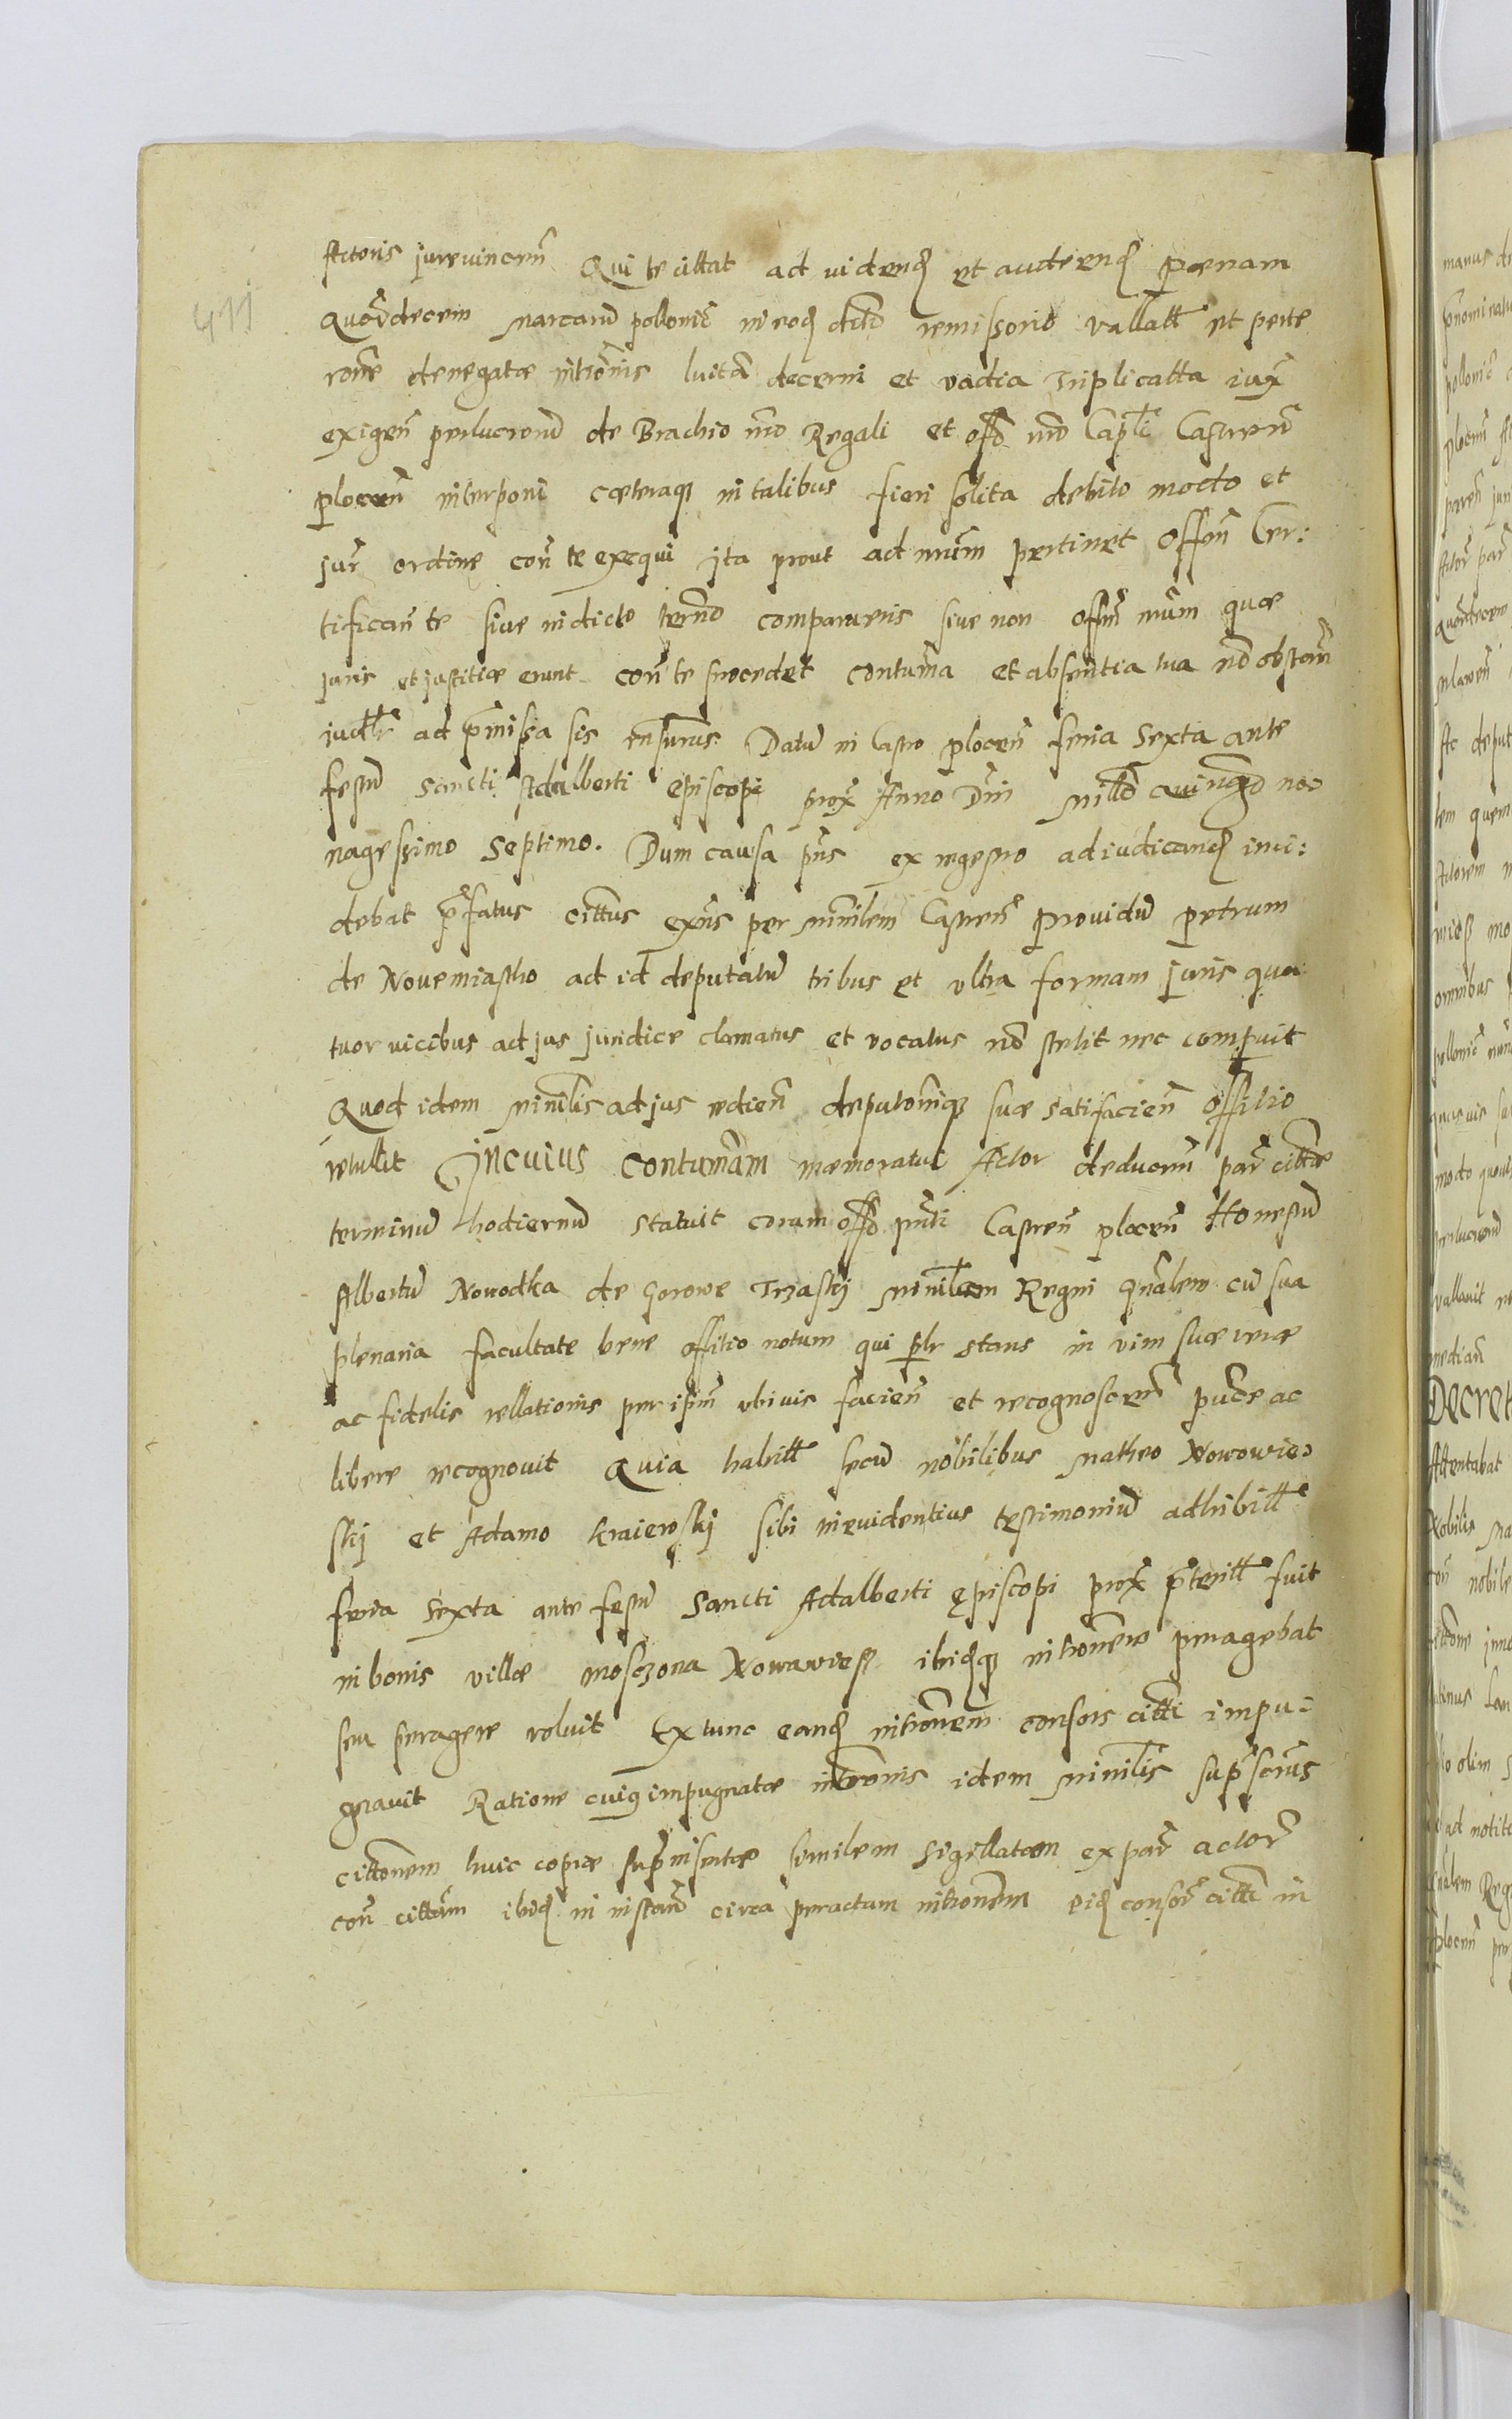 Actoris jurevincen̄ Qui te cittat ad videnḍ et audienḍ pœnam
Quordecem Marcarū polonic̄ in eoḍ dicto remissorio vallatt et perte
rōne denegatæ intromis̄ luitā decerni et vadia triplicatta iux̄
exigen̄ perlucrond de Brachio nr̄o Regali et offō nr̄o Capt̄li Castren̄
plocen̄ interponi cæteraq in talibus fieri solita debito modo et
jur̄ ordine con̄ te exequi jta prout ad nr̄um pertinet Offōn Cer:
tifican̄ te siue in dicto termō comparueris siue non offm̄ nr̄um quæ
juris et justitiæ erunt con̄ te procedet contuma et absentia tua nō obstan̄
judlr̄ ad p̄missa sis responsurus. Datū in Castro plocen̄ feria Sexta ante
festū Sancti Adalberti Episcopi prox̄ Anno Dn̄i Mill̄o quinḡo no-
nagessimo Septimo. Dum causa pn̄s ex regestro adiudicanḍ inci:
debat p̄fatus cittus exn̄s per Minr̄ilem Castren̄ prouidū petrum
de Nouemiastho ad id deputatū tribus et vltra formam juris qua:
tuor vicibus ad jus juridice clamatus et vocatus nō stetit nec comp̄uit
Quod idem Ministr̄lis ad jus redien̄ deputoniq suæ satisfacien̄ offitio
retullit Jncuius contumāam memoratus Actor deducen̄ par̄ citt̄æ
terminū hodiernū statuit coram offō pn̄ti Castren̄ plocen̄ Honestū
Albertū Nowodka de Gorowe Trzaskj Minr̄ilem Regni Gn̄alem cū sua
plenaria facultate bene offitio notum qui pn̄lr stans in vim suæ veræ
ac fidelis rellationis per ipm̄ vbiuis facien̄ et recognoscen̄ puḃce ac
libere recognouit Quia habitt secū nobilibus Matheo Nowowie-
skj et Adamo Kraiewskj sibi in euidentius testimoniū adhibitt
feria Sexta ante festū Sancti Adalberti Episcopi prox̄ p̄teritt fuit
in bonis villæ Mosczona Nowawies ibiḍq intronem̄ peragebat
seu peragere voluit Extunc eanḍ intronem̄ consors citti impu:
gnauit Ratione cuiq impugnatæ intronis̄ idem Minr̄ilis sup̄scrus
cittonem huic copiæ sup̄insertæ similem sigillatam ex par̄ actor̄
con̄ cittum ibiḍ in instan̄ circa peractam intronem̄ eiḍ consor̄ citti in